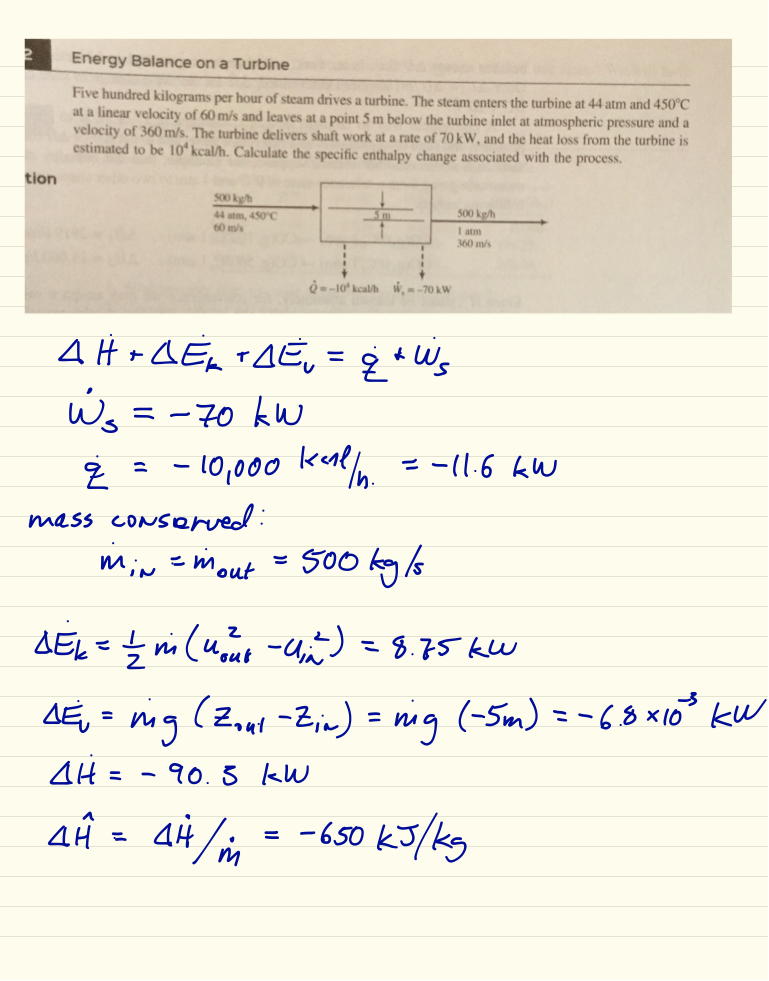 2
Energy Balance on a Turbine
Five hundred kilograms per hour of steam drives a turbine. The steam enters the turbine at 44 atm and 450°C
at a linear velocity of 60 m/s and leaves at a point 5 m below the turbine inlet at atmospheric pressure and a
velocity of 360 m/s. The turbine delivers shaft work at a rate of 70 kW, and the heat loss from the turbine is
estimated to be 10⁴ kcal/h. Calculate the specific enthalpy change associated with the process.
tion
500 kg/h
44 atm, 450°C
60 m/s
5 m
500 kg/h
1 atm
360 m/s
Q̇ = −10⁴ kcal/h Ẇₛ = −70 kW
ΔḢ + ΔĖₖ + ΔĖᵥ = q̇ + Ẇₛ
Ẇₛ = −70 kW
q̇ = −10,000 kcal/h. = −11.6 kW
mass conserved:
ṁ_in = ṁ_out = 500 kg/s
ΔĖₖ = 1/2 ṁ (u²_out − u_in²) = 8.75 kW
ΔĖᵥ = ṁg (Z_out − Z_in) = ṁg (−5m) = −6.8 × 10⁻³ kW
ΔḢ = −90.3 kW
ΔĤ = ΔḢ/ṁ = −650 kJ/kg